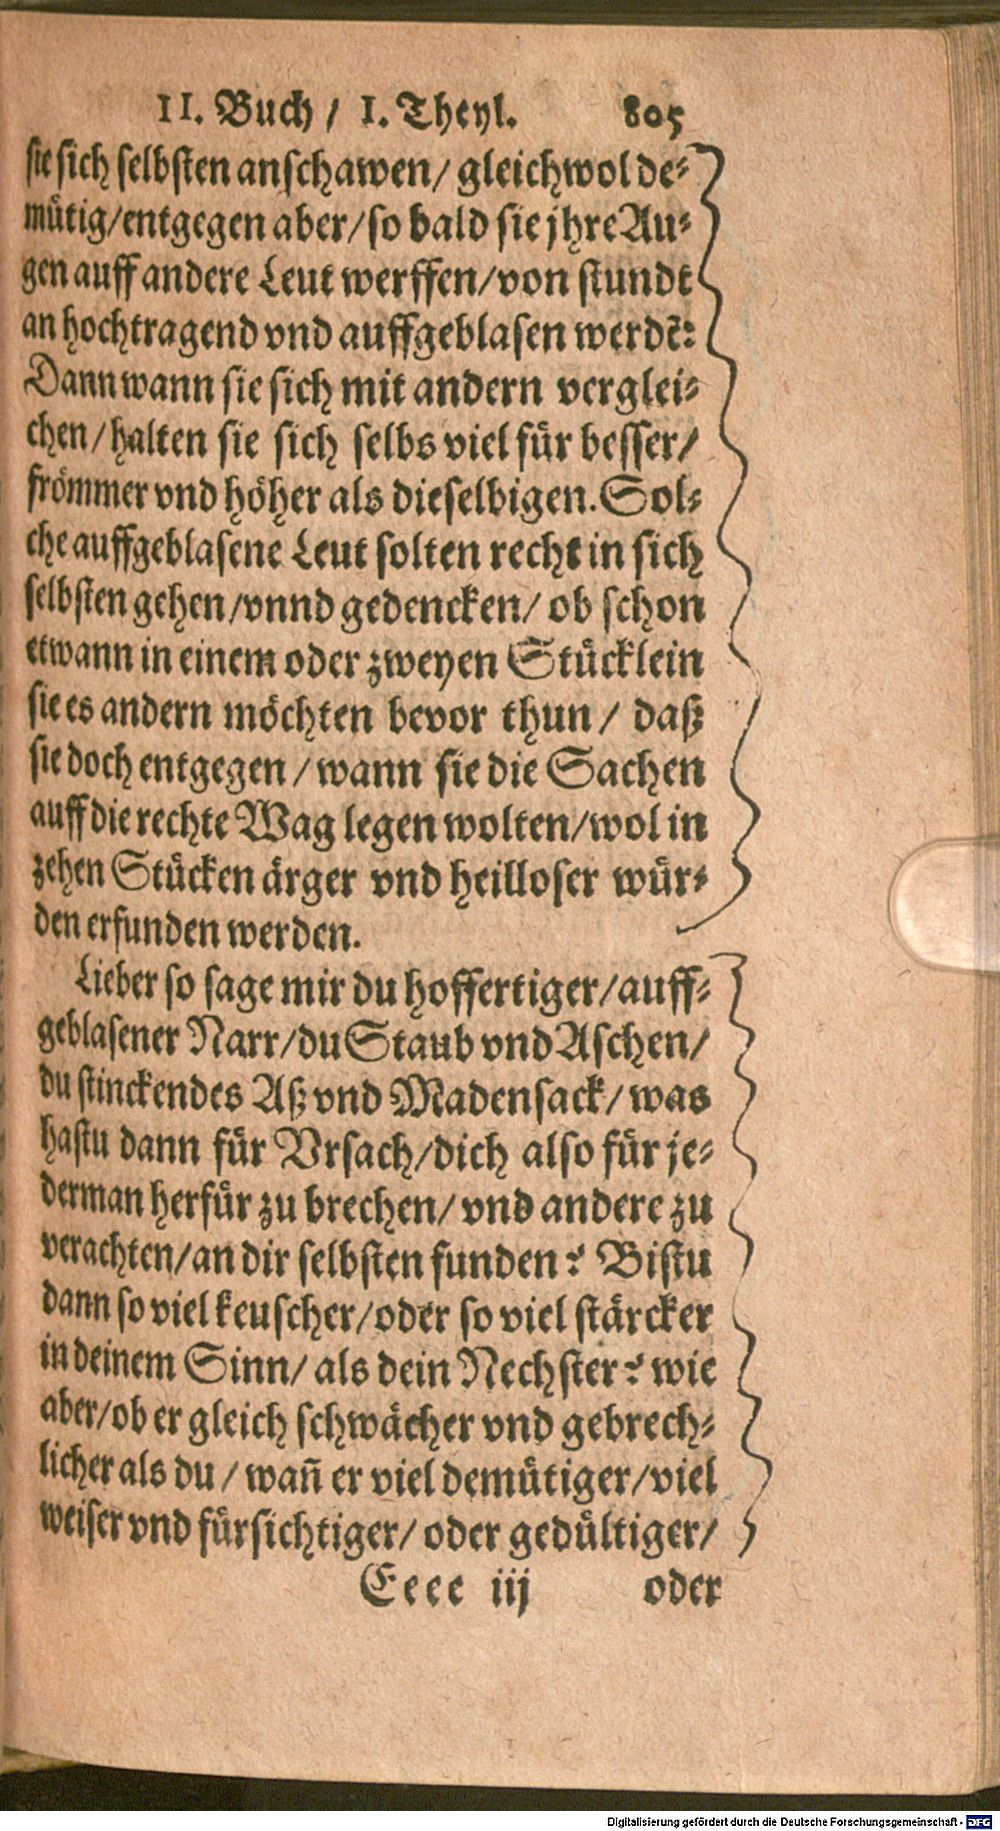 II. Buch / I. Theyl. 805
sie sich selbsten anschawen/ gleichwol de-
mütig/entgegen aber/so bald sie jhre Au-
gen auff andere Leut werffen/von stundt
an hochtragend vnd auffgeblasen werdẽ:
Dann wann sie sich mit andern verglei-
chen/halten sie sich selbs viel für besser/
frömmer vnd höher als dieselbigen. Sol-
che auffgeblasene Leut solten recht in sich
selbsten gehen/vnnd gedencken/ ob schon
etwann in einem oder zweyen Stücklein
sie es andern möchten bevor thun/ daß
sie doch entgegen/wann sie die Sachen
auff die rechte Wag legen wolten/wol in
zehen Stücken ärger vnd heilloser wür-
den erfunden werden.
Lieber so sage mir du hoffertiger/auff-
geblasener Narr/du Staub vnd Aschen/
du stinckendes Aß vnd Madensack/ was
hastu dann für Vrsach/dich also für je-
derman herfür zu brechen/ vnd andere zu
verachten/an dir selbsten funden? Bistu
dann so viel keuscher/oder so viel stärcker
in deinem Sinn/ als dein Nechster? wie
aber/ob er gleich schwächer vnd gebrech-
licher als du/ wañ er viel demütiger/viel
weiser vnd fürsichtiger/ oder gedültiger/
Eeee iij oder
Digitalisierung gefördert durch die Deutsche Forschungsgemeinschaft - DFG